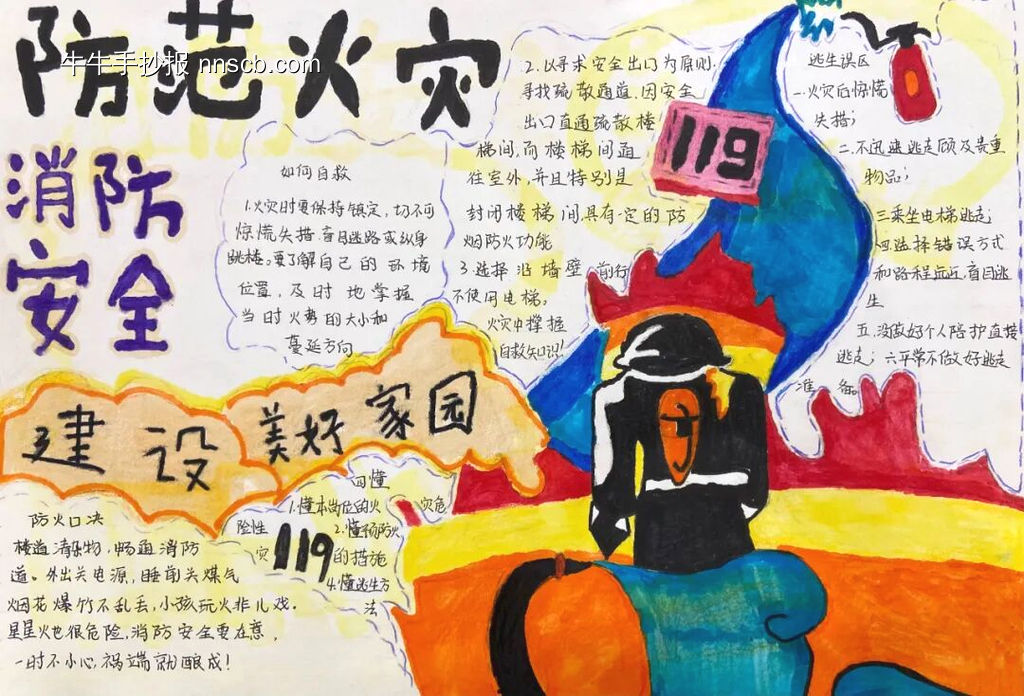 防范火灾
牛牛手抄报 nnscb.com
消防
安全
如何自救
1.火灾时要保持镇定,切不可
惊慌失措、盲目逃路或纵身
跳楼。要了解自己的环境
位置,及时地掌握
当时火势的大小和
蔓延方向
2.以寻求安全出口为原则
寻找疏散通道,因安全
出口直通疏散楼
梯间,而楼梯间通
往室外,并且特别是
封闭楼梯间具有一定的防
烟防火功能
3.选择沿墙壁前行
不使用电梯,
火灾中撑握
自救知识!
119
逃生误区
一.火灾后惊慌
失措;
二.不迅速逃走顾及贵重
物品;
三乘坐电梯逃走;
四选择错误方式
和路程远近,盲目逃
生
五.没做好个人陪护直接
逃走;六平常不做好逃走
准备。
建设美好家园
防火口决
楼道清杂物,畅通消防
道。外出关电源,睡前关煤气
烟花爆竹不乱丢,小孩玩火非儿戏.
星星火也很危险,消防安全要在意,
一时不小心,祸端就酿成!
四懂
1.懂本岗位的火灾危
险性 2.懂预防火
灾 119 的措施
4.懂逃生方
法